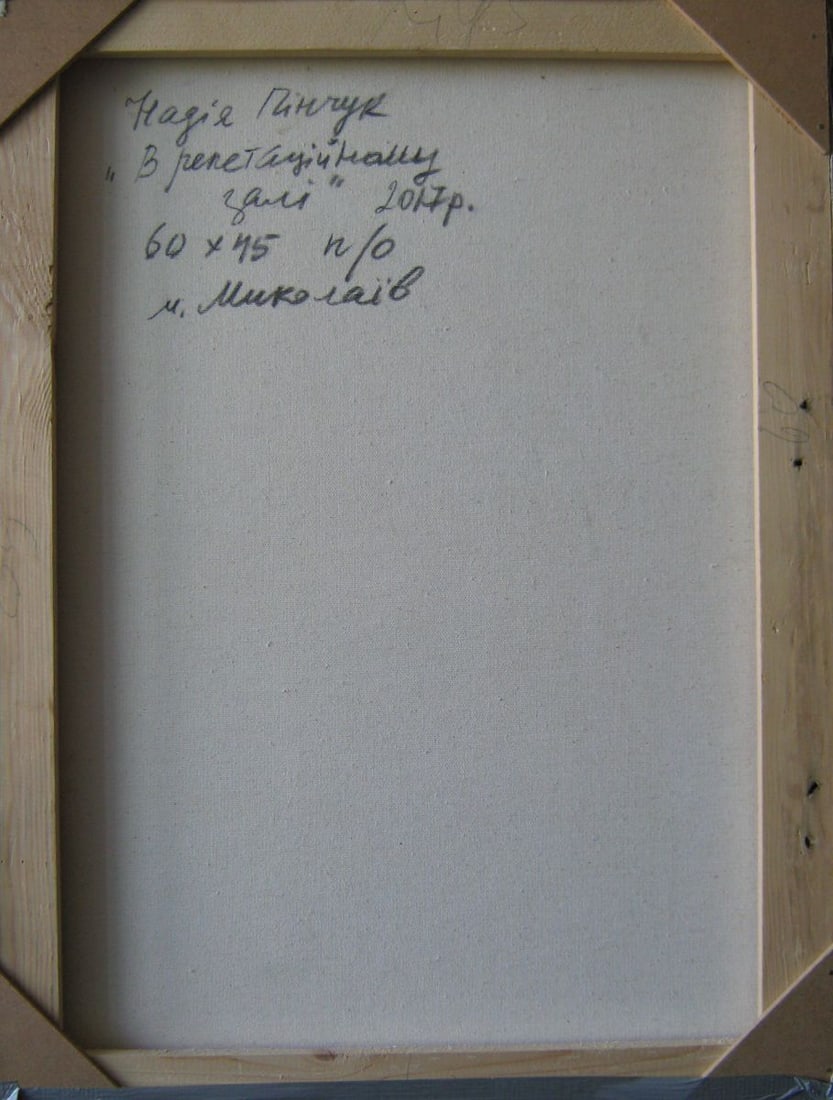 Надія Пінчук
„В репетаційному
залі" 2017р.
60 х 45 п/о
м. Миколаїв
60